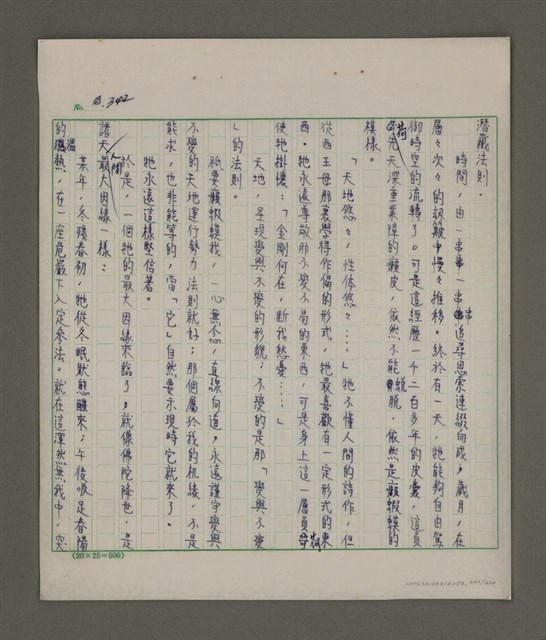 No. 342
潛藏法則。
時間，由一串串一串串追尋思索連綴而成，歲月，在
層々次々的皺皺中慢々推移。終於有一天，牠能夠自由駕
御時空的流轉了。可是這經歷一千二百多年的皮囊，這負
荷先天深重業障的癩皮，依然不能蛻脫。依然是癩蝦蟆的
模樣。
「天地悠々，性体悠々……」牠不懂人間的詩作，但
從西王母那裏學得作偈的形式，牠最喜歡有一定形式的東
西。牠永遠尊敬那不變不局的東西，可是身上這一層負荷
使牠掛懷：「金剛何在，斷我愁憂……」
天地，呈現變與不變的形貌；不變的是那「變與不變
」的法則。
祇要癩蝦蟆我，一心無忿，直線向道，永遠謹守變與
不變的天地運行勢力法則就好；那個屬於我的机緣，不是
能求，也非能等的，當「它」自然要示現時它就來了。
牠永遠這樣堅信著。
於是，一個牠的最大因緣來臨了，就像佛陀降世，是
諸天人間最大因緣一樣：
某年，冬殘春初，牠從冬眠狀態醒來；午後暖是春陽
的溫熱，在一座危巖下入定參法。就在這渾然無我中，突
(20×25=500)